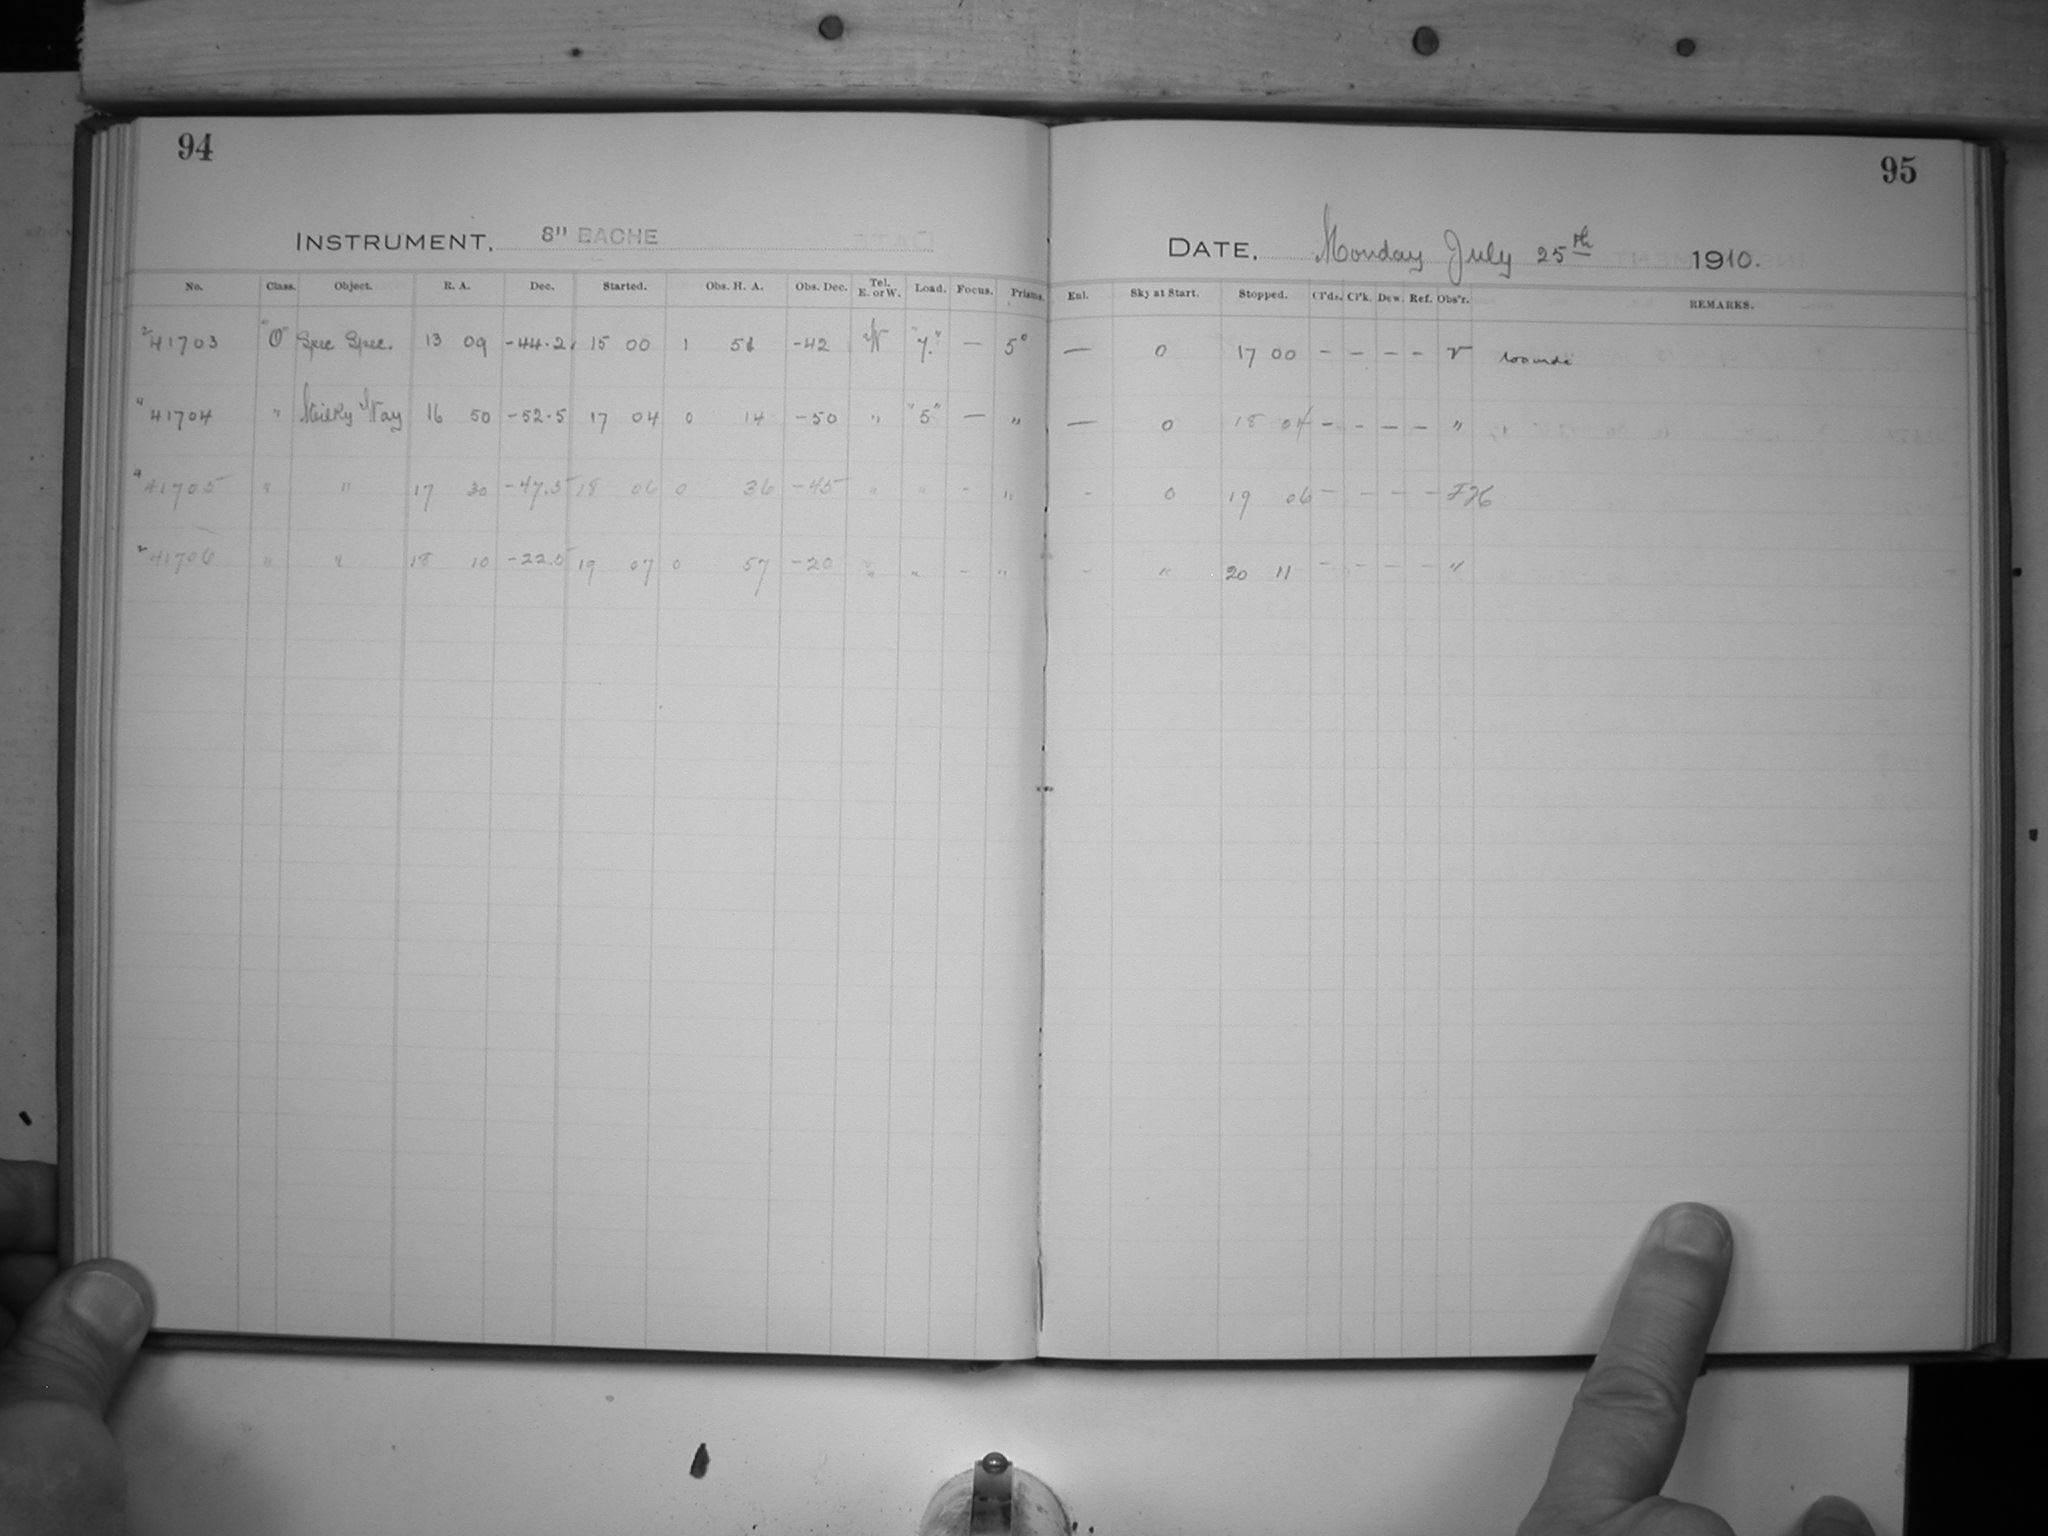 94
INSTRUMENT. 8" BACHE
No. Class. Object. R. A. Dec. Started. Obs. H. A. Obs. Dec. Tel. E. or W. Load. Focus. Prisms.
41703 "O" Spec Spec. 13 09 -44.2 15 00 1 51 -42 W "7." — 5°
41704 " Milky Way 16 50 -52.5 17 04 0 14 -50 " "5" — "
41705 " " 17 30 -47.5 18 06 0 36 -45 " " - "
41706 " " 18 10 -22.5 19 07 0 57 -20 " " - "
95
DATE. Monday July 25th 1910.
Enl. Sky at Start. Stopped. Cl'ds. Cl'k. Dew. Ref. Obs'r. REMARKS.
— 0 17 00 - - - - V wound
— 0 18 04 - - - - "
- 0 19 06 - - - -
- " 20 11 - - - - "